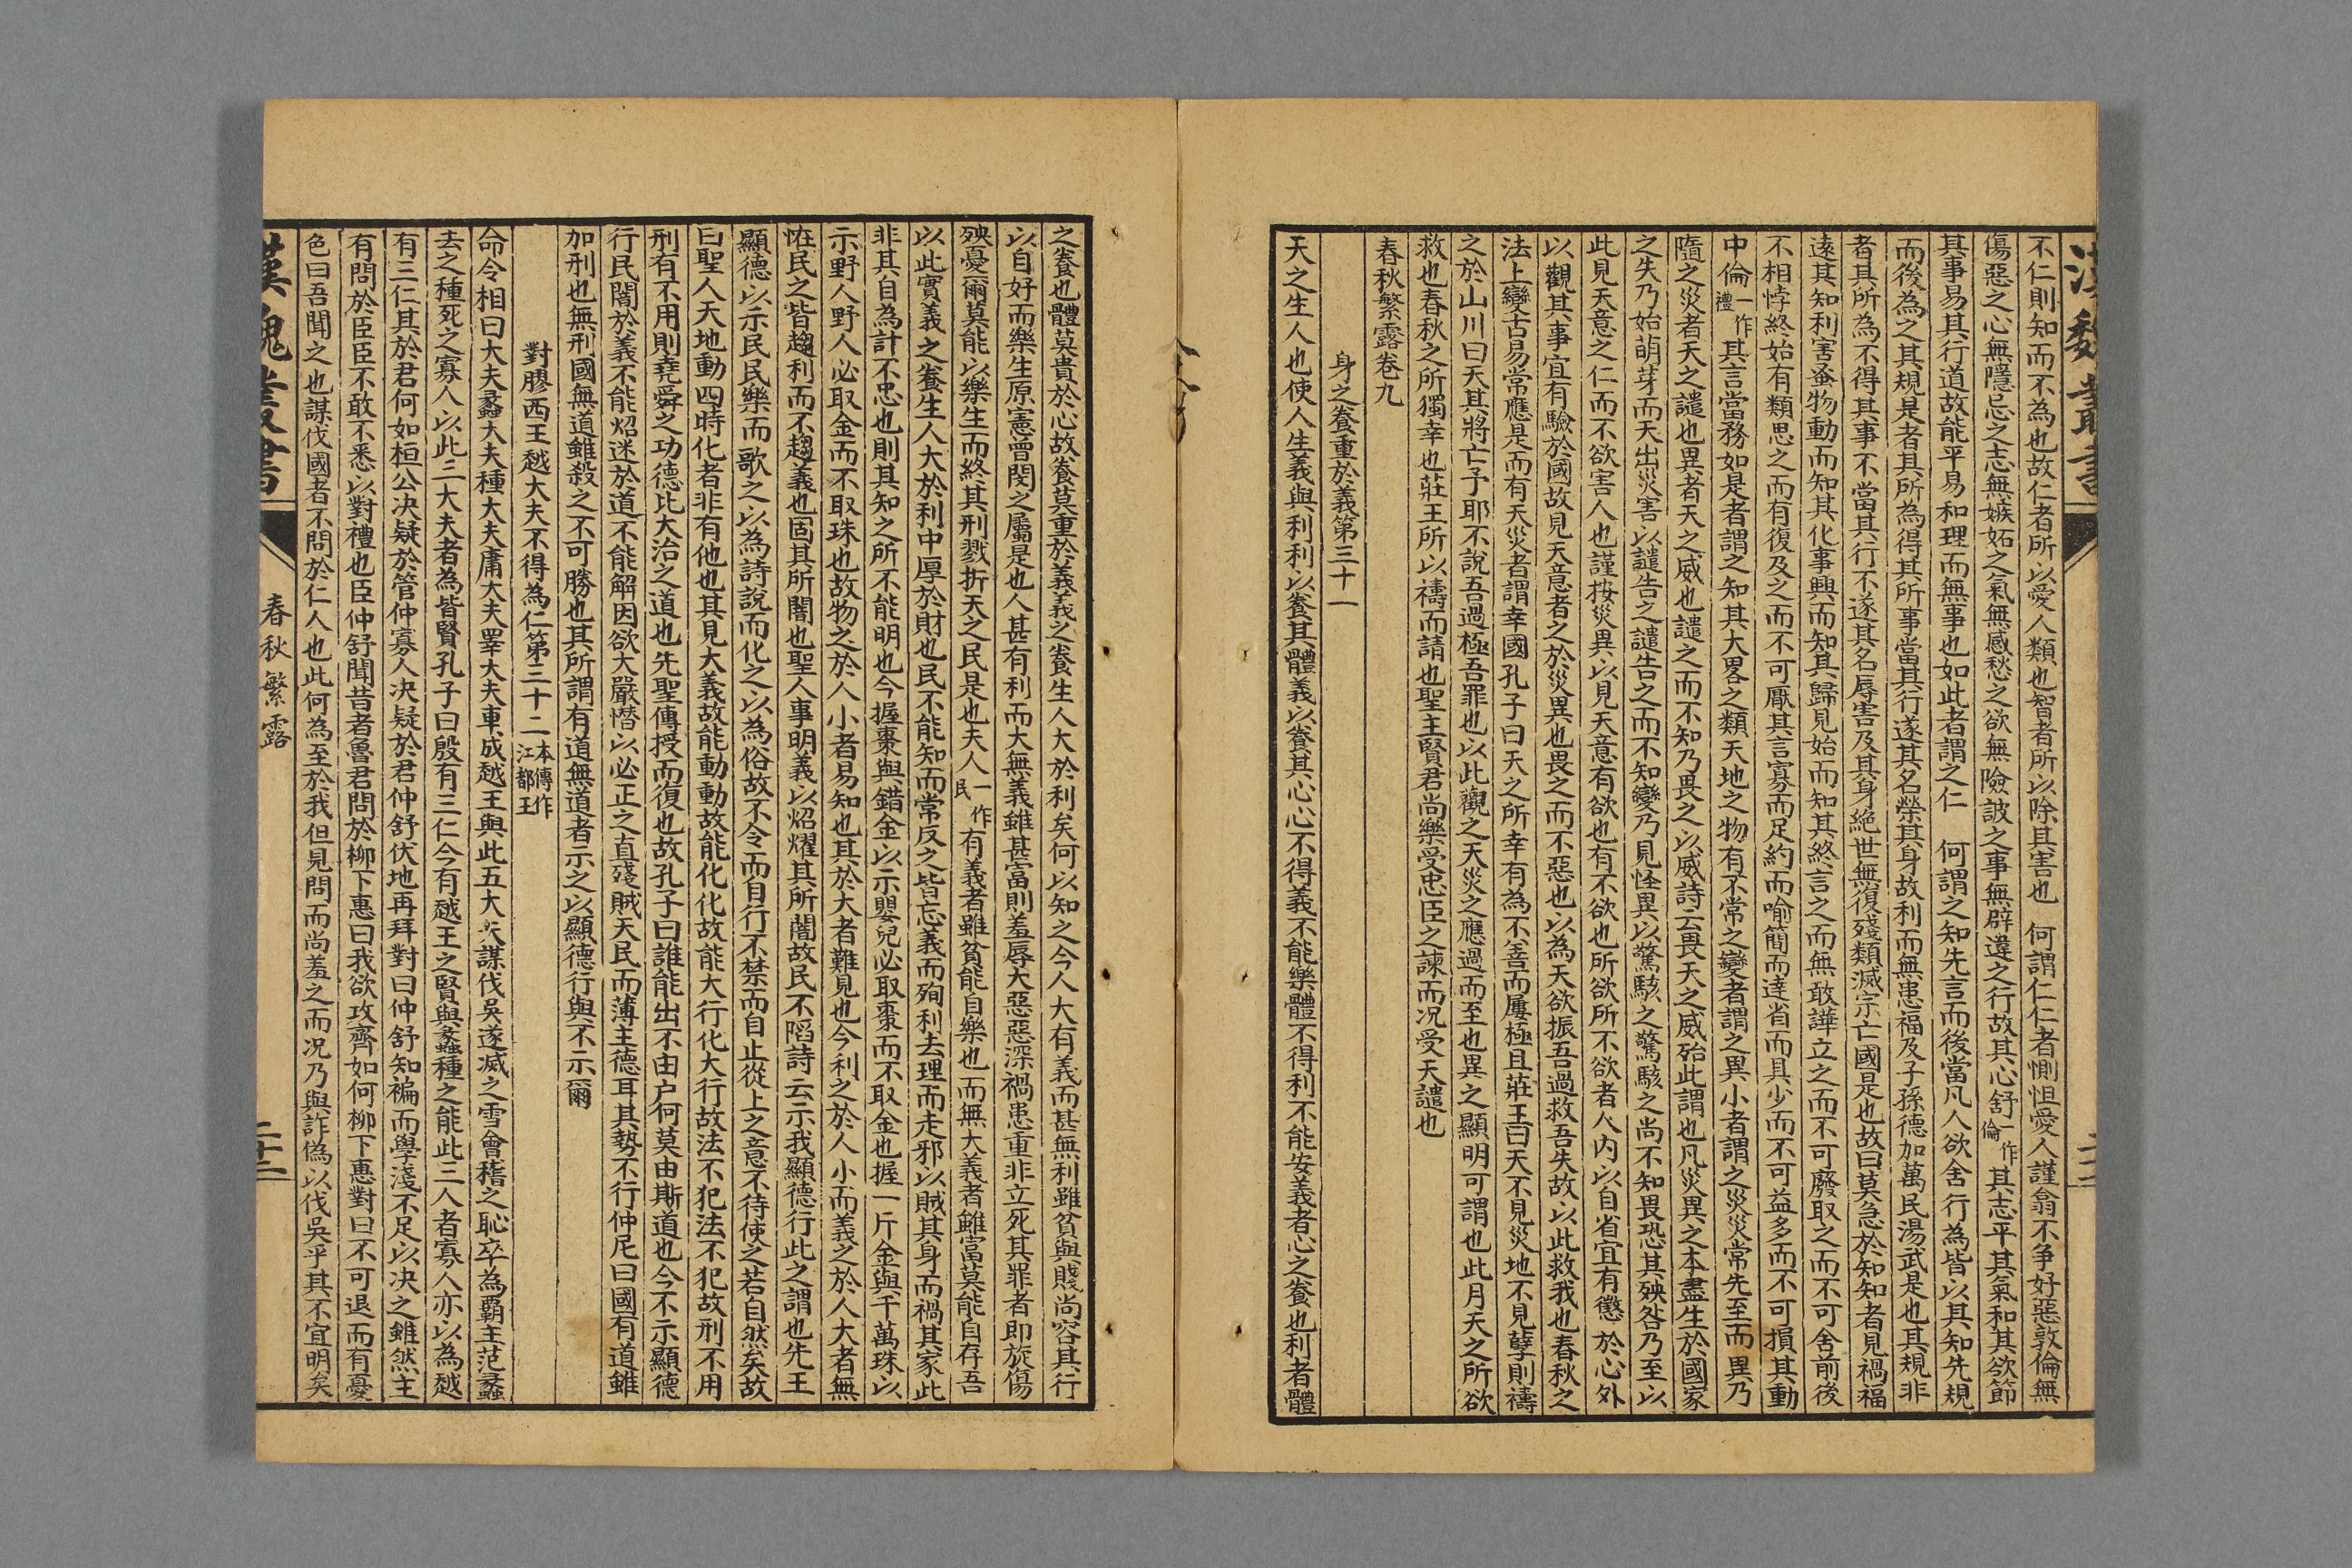 漢魏叢書
二十二
不仁則知而不為也故仁者所以愛人類也智者所以除其害也　何謂仁仁者惻怛愛人謹翕不爭好惡敦倫無
傷惡之心無隱忌之志無嫉妬之氣無感愁之欲無險詖之事無辟違之行故其心舒一作倫其志平其氣和其欲節
其事易其行道故能平易和理而無事也如此者謂之仁　何謂之知先言而後當凡人欲舍行為皆以其知先規
而後為之其規是者其所為得其所事當其行遂其名榮其身故利而無患福及子孫德加萬民湯武是也其規非
者其所為不得其事不當其行不遂其名辱害及其身絕世無復殘類滅宗亡國是也故曰莫急於知知者見禍福
遠其知利害蚤物動而知其化事興而知其歸見始而知其終言之而無敢譁立之而不可廢取之而不可舍前後
不相悖終始有類思之而有復及之而不可厭其言寡而足約而喻簡而達省而具少而不可益多而不可損其動
中倫一作禮其言當務如是者謂之知其大畧之類天地之物有不常之變者謂之異小者謂之災災常先至而異乃
隨之災者天之譴也異者天之威也譴之而不知乃畏之以威詩云畏天之威殆此謂也凡災異之本盡生於國家
之失乃始萌芽而天出災害以譴告之譴告之而不知變乃見怪異以驚駭之驚駭之尚不知畏恐其殃咎乃至以
此見天意之仁而不欲害人也謹按災異以見天意有欲也有不欲也所欲所不欲者人内以自省宜有懲於心外
以觀其事宜有驗於國故見天意者之於災異也畏之而不惡也以為天欲振吾過救吾失故以此救我也春秋之
法上變古易常應是而有天災者謂幸國孔子曰天之所幸有為不善而屢極且莊王曰天不見災地不見孽則禱
之於山川曰天其將亡予耶不說吾過極吾罪也以此觀之天災之應過而至也異之顯明可謂也此月天之所欲
救也春秋之所獨幸也莊王所以禱而請也聖主賢君尚樂受忠臣之諫而况受天譴也
春秋繁露卷九
身之養重於義第三十一
天之生人也使人生義與利利以養其體義以養其心心不得義不能樂體不得利不能安義者心之養也利者體
之養也體莫貴於心故養莫重於義義之養生人大於利矣何以知之今人大有義而甚無利雖貧與賤尚容其行
以自好而樂生原憲曾閔之屬是也人甚有利而大無義雖甚富則羞辱大惡惡深禍患重非立死其罪者即旋傷
殃憂爾莫能以樂生而終其刑戮折天之民是也夫人一作民有義者雖貧能自樂也而無大義者雖富莫能自存吾
以此實義之養生人大於利中厚於財也民不能知而常反之皆忘義而殉利去理而走邪以賊其身而禍其家此
非其自為計不忠也則其知之所不能明也今握棗與錯金以示嬰兒必取棗而不取金也握一斤金與千萬珠以
示野人野人必取金而不取珠也故物之於人小者易知也其於大者難見也今利之於人小而義之於人大者無
怪民之皆趨利而不趨義也固其所闇也聖人事明義以炤燿其所闇故民不陷詩云示我顯德行此之謂也先王
顯德以示民民樂而歌之以為詩說而化之以為俗故不令而自行不禁而自止從上之意不待使之若自然矣故
曰聖人天地動四時化者非有他也其見大義故能動動故能化化故能大行化大行故法不犯法不犯故刑不用
刑有不用則堯舜之功德比大治之道也先聖傳授而復也故孔子曰誰能出不由户何莫由斯道也今不示顯德
行民闇於義不能炤迷於道不能解因欲大嚴憯以必正之直殘賊天民而薄主德耳其勢不行仲尼曰國有道雖
加刑也無刑國無道雖殺之不可勝也其所謂有道無道者示之以顯德行與不示爾
對膠西王越大夫不得為仁第三十二本傳作江都王
命令相曰大夫蠡大夫種大夫庸大夫睪大夫車成越王與此五大夫謀伐吳遂滅之雪會稽之恥卒為霸主范蠡
去之種死之寡人以此二大夫者為皆賢孔子曰殷有三仁今有越王之賢與蠡種之能此三人者寡人亦以為越
有三仁其於君何如桓公决疑於管仲寡人决疑於君仲舒伏地再拜對曰仲舒知褊而學淺不足以决之雖然主
有問於臣臣不敢不悉以對禮也臣仲舒聞昔者魯君問於柳下惠曰我欲攻齊如何柳下惠對曰不可退而有憂
色曰吾聞之也謀伐國者不問於仁人也此何為至於我但見問而尚羞之而况乃與詐偽以伐吳乎其不宜明矣
漢魏叢書
春秋繁露
二十二